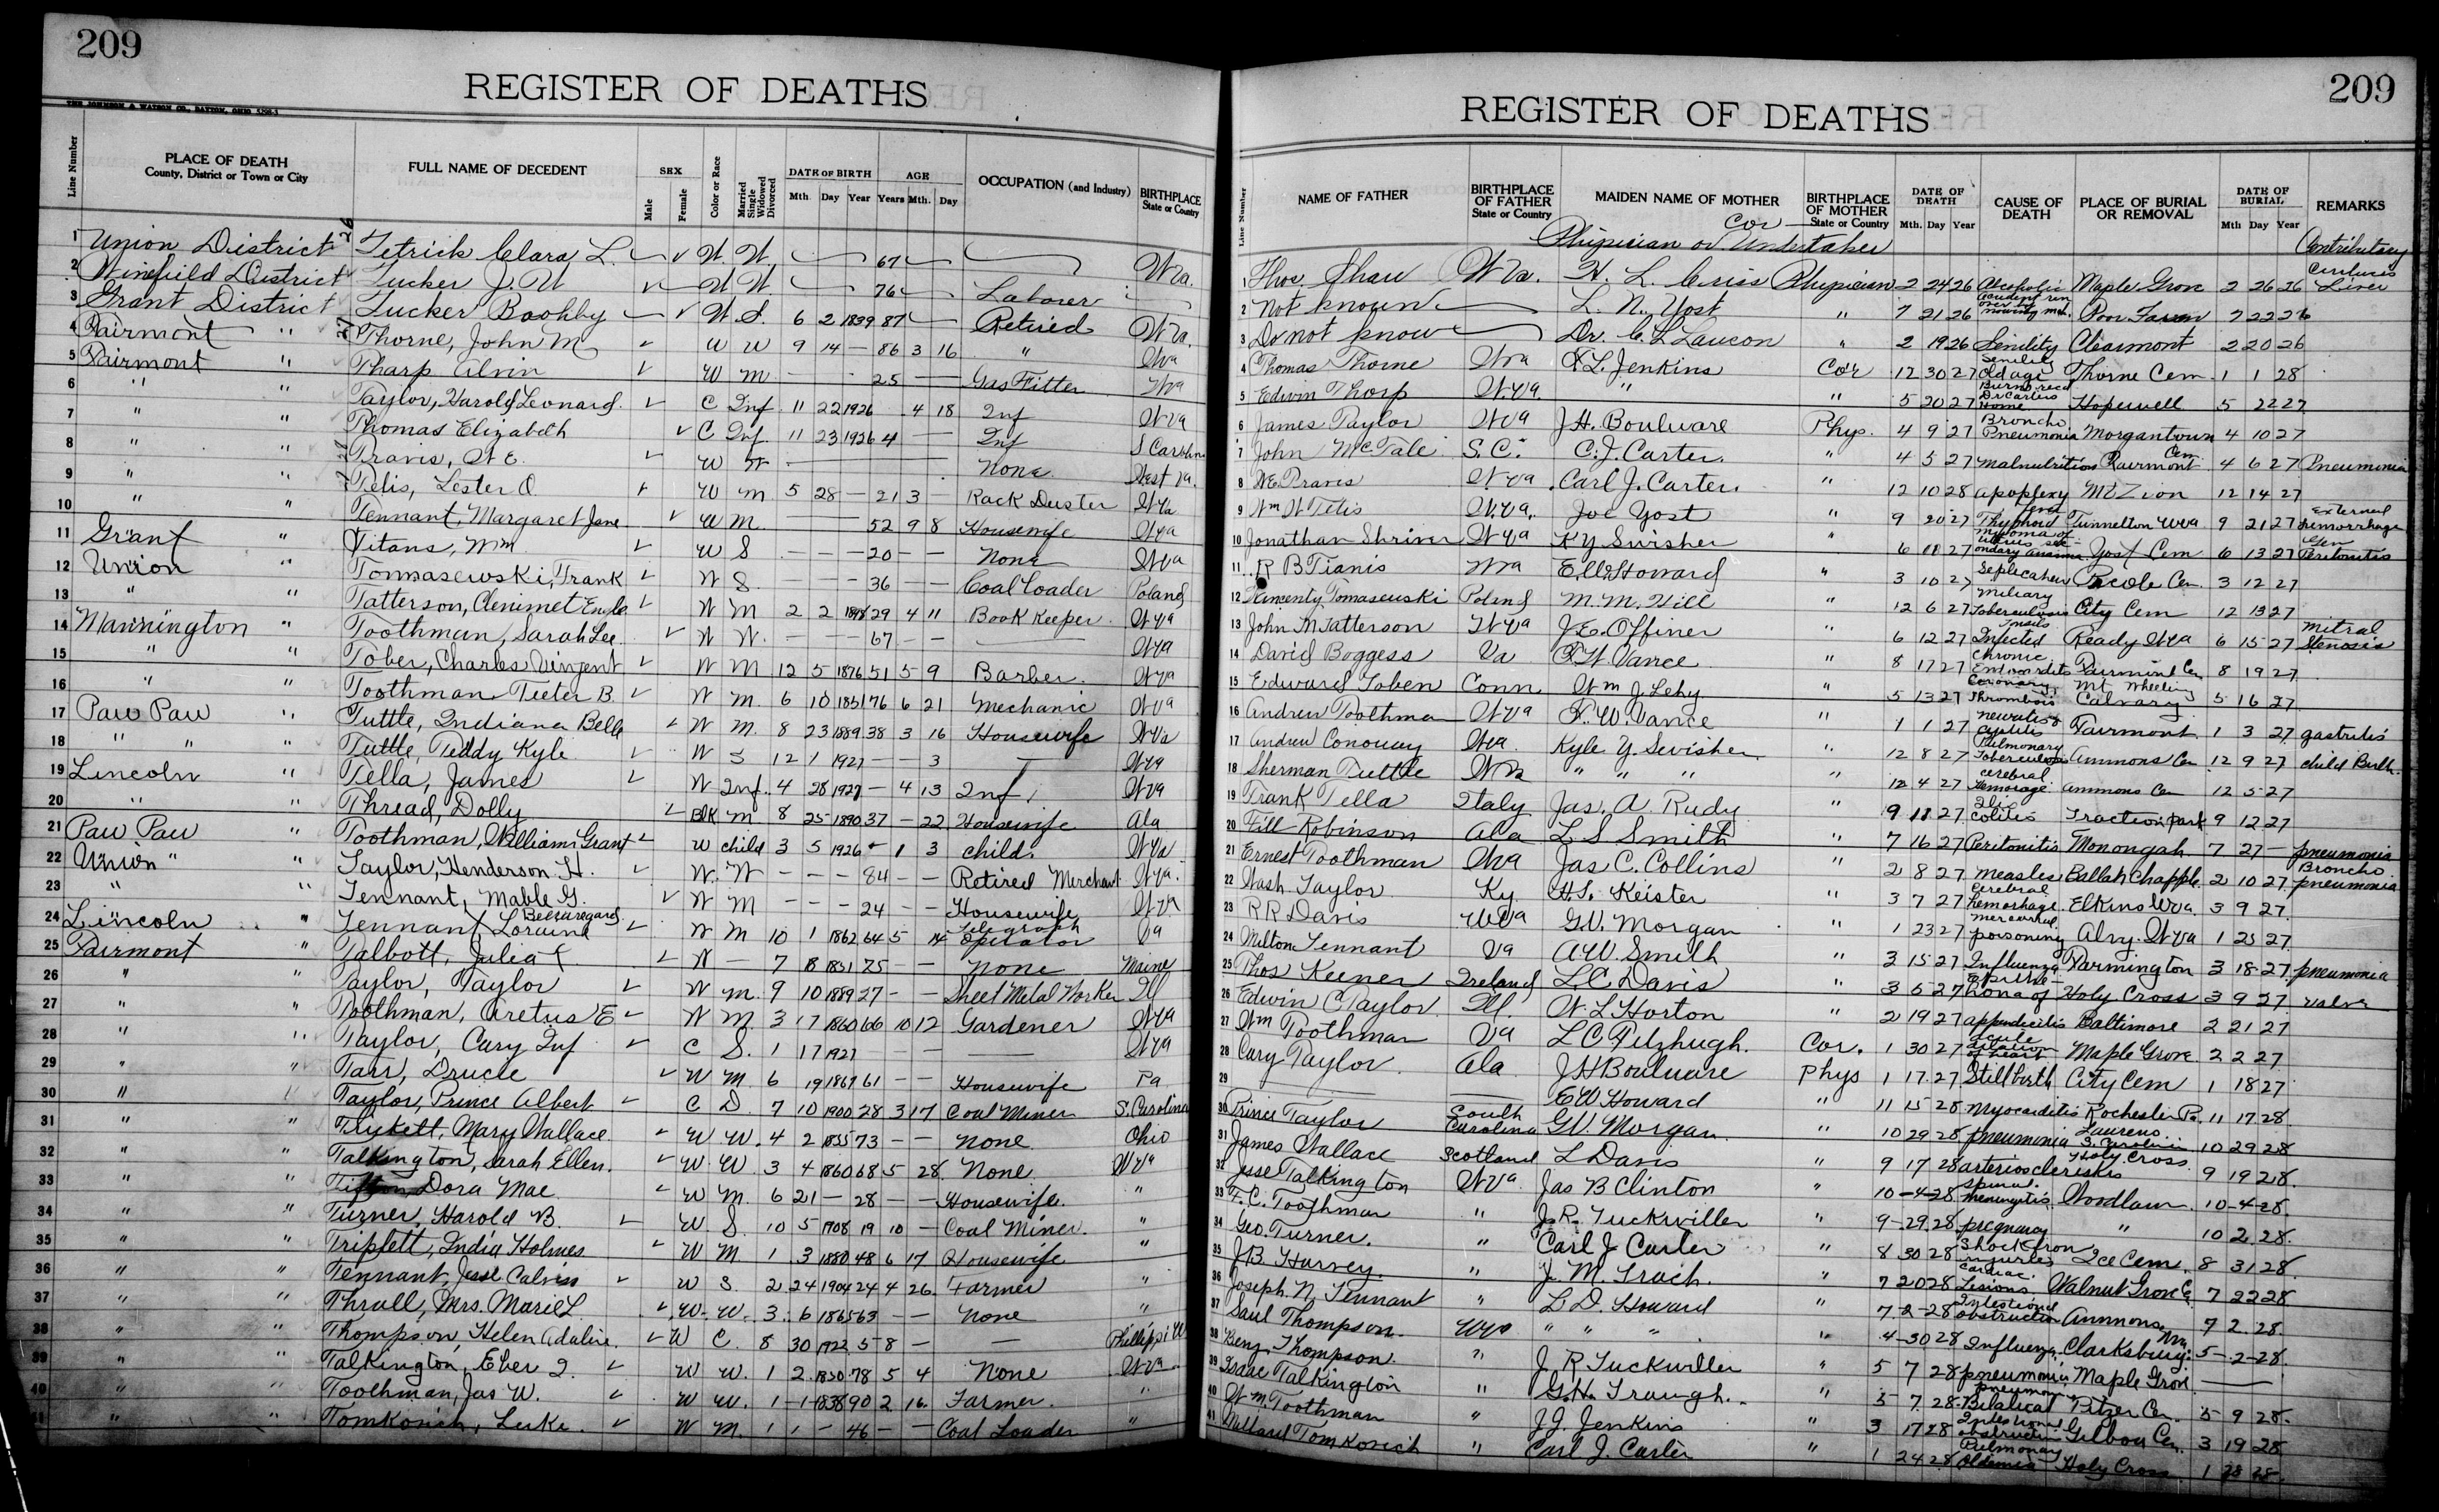 209
REGISTER OF DEATHS
THE JOHNSON & WATSON CO., DAYTON, OHIO
Line Number
PLACE OF DEATH
County, District or Town or City
FULL NAME OF DECEDENT
SEX
Male
Female
Color or Race
Married Single Widowed Divorced
DATE OF BIRTH
Mth. Day Year
AGE
Years Mth. Day
OCCUPATION (and Industry)
BIRTHPLACE
State or Country
26
1 Union District Tetrick Clara L. W. W. 67 W Va.
2 Winefield District Tucker J. W W W 76 Laborer
3 Grant District Tucker W S. 6 2 1839 87 Retired W Va.
4 Fairmont " Thorne, John M W W 9 14 — 86 3 16 " Wva
5 Fairmont " Tharp Alvin W M — — - 25 — Gas Fitter Wva
6 " " Taylor, Harold Leonard C Inf. 11 22 1926 4 18 Inf WVa
7 " " Thomas Elizabeth C Inf. 11 23 1926 4 — — Inf S Carolina
8 " " Travis, W E. W W - None West Va.
9 " " Telis, Lester O. W M 5 28 — 21 3 — Rock Duster WVa
10 " " Tennant, Margaret Jane W M. 52 9 8 Housewife WVa
11 Grant " Titans, Wm W S — — — 20 — — None WVa
12 Union " Tommasewski, Frank W S. — — — 36 — — Coal Loader Poland
13 " " Tatterson, Clenimet Emle W M 2 2 1898 29 4 11 Book Keeper WVa
14 Mannington " Toothman, Sarah Lee W W. — — — 67 — — WVa
15 " " Tober, Charles Vinzent W M 12 5 1876 51 5 9 Barber WVa
16 " " Toothman Teeter B. W M. 6 10 1851 76 6 21 Mechanic WVa
17 Paw Paw " Tuttle, Indiana Belle W M. 8 23 1889 38 3 16 Housewife WVa
18 " " " Tuttle, Teddy Kyle W S 12 1 1927 — — 3 — WVa
19 Lincoln " Tella, James W Inf. 4 28 1927 — 4 13 Inf. WVa
20 " " Thread, Dolly Blk M 8 25 1890 37 — 22 Housewife Ala
21 Paw Paw " Toothman, William Grant W child 3 5 1926 1 3 child. WVa
22 Union " " Taylor, Henderson H. W. W — — — 84 — — Retired Merchant WVa.
23 " " Tennant, Mable G. W M — — — 24 — — Housewife WVa
24 Lincoln " Tennant, Loraine Beauregard W M 10 1 1862 64 5 14 Telegraph Operator Va
25 Fairmont Talbott, Julia W — 7 18 1851 75 — — None Maine
26 " " Taylor, Taylor W M. 9 10 1889 27 - — Sheet Metal Worker Ill
27 " " Toothman, Aretus E W M 3 17 1860 66 10 12 Gardener WVa
28 " " Taylor, Cary Inf C S. 1 17 1927 — WVa
29 " " Tarr, Drucie W M. 6 19 1867 61 — — Housewife Pa
30 " " Taylor, Prince Albert C D. 7 10 1900 28 3 17 Coal Miner S. Carolina
31 " " Trickett, Mary Wallace W W. 4 2 1855 73 — — None Ohio
32 " " Talkington, Sarah Ellen. W W. 3 4 1860 68 5 28. None WVa
33 " " Dora Mae W M. 6 21 — 28 — — Housewife. "
34 " " Turner, Harold B. W S. 10 5 1908 19 10 — Coal Miner. "
35 " " Triplett, India Holmes W M 1 3 1880 48 6 17 Housewife "
36 " " Tennant, Jesse Calvin W S. 2 24 1904 24 4 26 Farmer "
37 " " Thrall, Mrs. Marie L W. W. 3 6 1865 63 — — None "
38 " " Thompson, Helen Adaline W C. 8 30 1922 5 8 — — Phillippi W
39 " " Talkington, Eber I. W W. 1 2 1850 78 5 4 None WVa
40 " " Toothman, Jas W. W W. 1 1 1838 90 2 16 Farmer. "
41 " " Tomkovich, Luke W M. 1 1 — 46 — — Coal Loader "
209
REGISTER OF DEATHS
Line Number
NAME OF FATHER
BIRTHPLACE OF FATHER
State or Country
MAIDEN NAME OF MOTHER
Cor —
Physician or Undertaker
BIRTHPLACE OF MOTHER
State or Country
DATE OF DEATH
Mth. Day Year
CAUSE OF DEATH
PLACE OF BURIAL OR REMOVAL
DATE OF BURIAL
Mth Day Year
REMARKS
Contributary
1 Thos. Shaw W Va. H. L. Criss Physician 2 24 26 Alcoholic Maple Grove 2 26 26 Liver
2 Not known L. N. Yost " 7 21 26 Accident run over by Poor Farm 7 22 26
3 Do not know Dr. C. L Laucon " 2 19 26 Senility Clearmont 2 20 26
4 Thomas Thorne Wva L. Jenkins Cor 12 30 27 Senility Old age Thorne Cem. 1 1 28
5 Edwin Tharp W.Va. " " 5 20 27 Burns recd Home Hopewell 5 22 27
6 James Taylor WVa J.H. Boulware Phys. 4 9 27 Broncho Pneumonia Morgantown 4 10 27
7 John McTale S.C. C. J. Carter. " 4 5 27 Malnutrition Fairmont Cem 4 6 27 Pneumonia
8 WE Travis WVa Carl J. Carter. " 12 10 28 Apoplexy Mt Zion 12 14 27
9 Wm W Telis W.Va. Joe Yost " 9 20 27 Thyphoid Fever Tunnelton WVa 9 21 27 External Hemorrhage
10 Jonathan Shriver WVa K Y Swisher " 6 11 27 Myoma of uterus secondary anaemia Yost Cem 6 13 27 Gen Peritonitis
11 R B Tianis Wva E.W. Howard " 3 10 27 Cem. 3 12 27
12 Tomasewski Poland M. M. Hill " 12 6 27 Miliary Tuberculosis City Cem 12 13 27
13 John M Tatterson WVa J.E. Offiner " 6 12 27 Infected Tonsils Ready WVa 6 15 27 Mitral Stenosis
14 David Boggess Va F W. Vance " 8 17 27 Chronic Endocardits Fairmont Ce 8 19 27
15 Edward Toben Conn Wm J. Lehy " 5 13 27 Coronary Thrombois Mt Calvary Wheeling 5 16 27
16 Andrew Toothman WVa F. W. Vance " 1 1 27 Cystitis Fairmont. 1 3 27 gastritis
17 Andrew Conoway Wva. Kyle Y. Swisher " 12 8 27 Pulmonary Tuberculosis Ammons Cem 12 9 27 child Birth.
18 Sherman Tuttle W Va " " " " 12 4 27 cerebral Hemorage Ammons Cem 12 5 27
19 Frank Tella Italy Jas. A. Rudy " 9 11 27 Colitis Traction Park 9 12 27
20 Robinson Ala L S Smith " 7 16 27 Peritonitis Monongah 7 27 — pneumonia
21 Ernest Toothman Wva Jas C. Collins " 2 8 27 Measles Ballah Chapple 2 10 27 Broncho pneumonia
22 Wash Taylor Ky H.S. Keister " 3 7 27 Cerebral hemorhage Elkins Wva. 3 9 27
23 R R Davis WVa G.V. Morgan " 1 23 27 mercurial poisoning Alvy. WVa 1 25 27
24 Milton Tennant Va A W. Smith " 3 15 27 Influenza Farmington 3 18 27 pneumonia
25 Thos Keener Ireland L.C Davis " 3 6 27 Holy Cross 3 9 27 valve
26 Edwin C Taylor Ill. W. L Horton " 2 19 27 Appendicitis Baltimore 2 21 27
27 Wm Toothman Va L C Fitzhugh. Cor. 1 30 27 acute dilation of heart Maple Grove 2 2 27
28 Cary Taylor Ala J H Boulware Phys 1 17 27 Stillbirth City Cem 1 18 27
29 — E W Howard " 11 15 28 Myocarditis Rochester Pa. 11 17 28
30 Prince Taylor South Carolina G.V. Morgan " 10 29 28 pneumonia Laurens S. Carolina 10 29 28
31 James Wallace Scotland L Davis " 9 17 28 arteriosclerisis Holy Cross 9 19 28
32 Jesse Talkington WVa Jas B Clinton " 10 4 28 Spinal meningitis Woodlawn 10 4 28
33 F. C. Toothman " J. R. Tuckwiller " 9 29 28 pregnancy " 10 2 28
34 Geo. Turner. " Carl J Carter " 8 30 28 Shock from injuries Ice Cem. 8 31 28
35 J.B. Harvey. " J. M. Trach. " 7 20 28 Cardiac Lesions Walnut Grove Ce 7 22 28
36 Joseph N. Tennant " L D. Howard " 7 2 28 Intestional obstruction Ammons 7 2 28
37 Saul Thompson. WVa " " " " 4 30 28 Influenza Clarksburg 5 2 28
38 Benj. Thompson. " J. R Tuckwiller " 5 7 28 pneumonia Maple Grove —
39 Isaac Talkington " G.H. Traugh. " 5 7 28 pneumonia Bilatical Pitzer Cem. 5 9 28
40 Wm. Toothman " J.J. Jenkins " 3 17 28 Intestional obstruction Gilboa Cem. 3 19 28
41 Tomkovich " Carl J. Carter " 1 24 28 Pulmonary Holy Cross 1 28 28